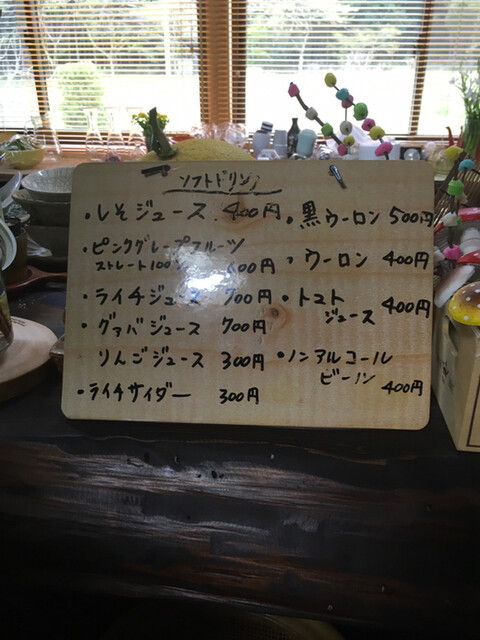 ソフトドリンク
・しそジュース 400円
・ピンクグレープフルーツ
ストレート100%
・ライチジュース 700円
・グァバジュース 700円
りんごジュース 300円
・ライチサイダー 300円
・黒ウーロン 500円
・ウーロン 400円
・トマト
ジュース 400円
・ノンアルコール
ビール 400円